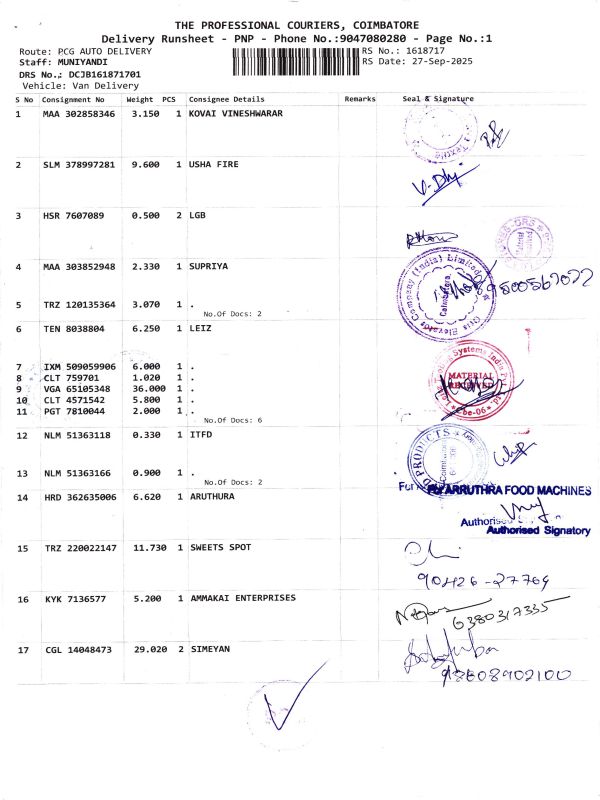 THE PROFESSIONAL COURIERS, COIMBATORE
Delivery Runsheet - PNP - Phone No.:9047080280 - Page No.:1
Route: PCG AUTO DELIVERY RS No.: 1618717
Staff: MUNIYANDI RS Date: 27-Sep-2025
DRS No.: DCJB161871701
Vehicle: Van Delivery
S No Consignment No Weight PCS Consignee Details Remarks Seal & Signature
1 MAA 302858346 3.150 1 KOVAI VINESHWARAR
2 SLM 378997281 9.600 1 USHA FIRE
V. Dhj
3 HSR 7607089 0.500 2 LGB
4 MAA 303852948 2.330 1 SUPRIYA
Company (India) Limited
Coimbatore
5 TRZ 120135364 3.070 1 .
No.Of Docs: 2
6 TEN 8038804 6.250 1 LEIZ
Systems India
7 IXM 509059906 6.000 1 .
MATERIAL
8 CLT 759701 1.020 1 .
RECEIVED
9 VGA 65105348 36.000 1 .
10 CLT 4571542 5.800 1 .
11 PGT 7810044 2.000 1 .
No.Of Docs: 6
12 NLM 51363118 0.330 1 ITFD
PRODUCTS
13 NLM 51363166 0.900 1 .
No.Of Docs: 2
14 HRD 362635006 6.620 1 ARUTHURA
ARRUTHRA FOOD MACHINES
Authorised Signatory
15 TRZ 220022147 11.730 1 SWEETS SPOT
90426-27769
16 KYK 7136577 5.200 1 AMMAKAI ENTERPRISES
6380317335
17 CGL 14048473 29.020 2 SIMEYAN